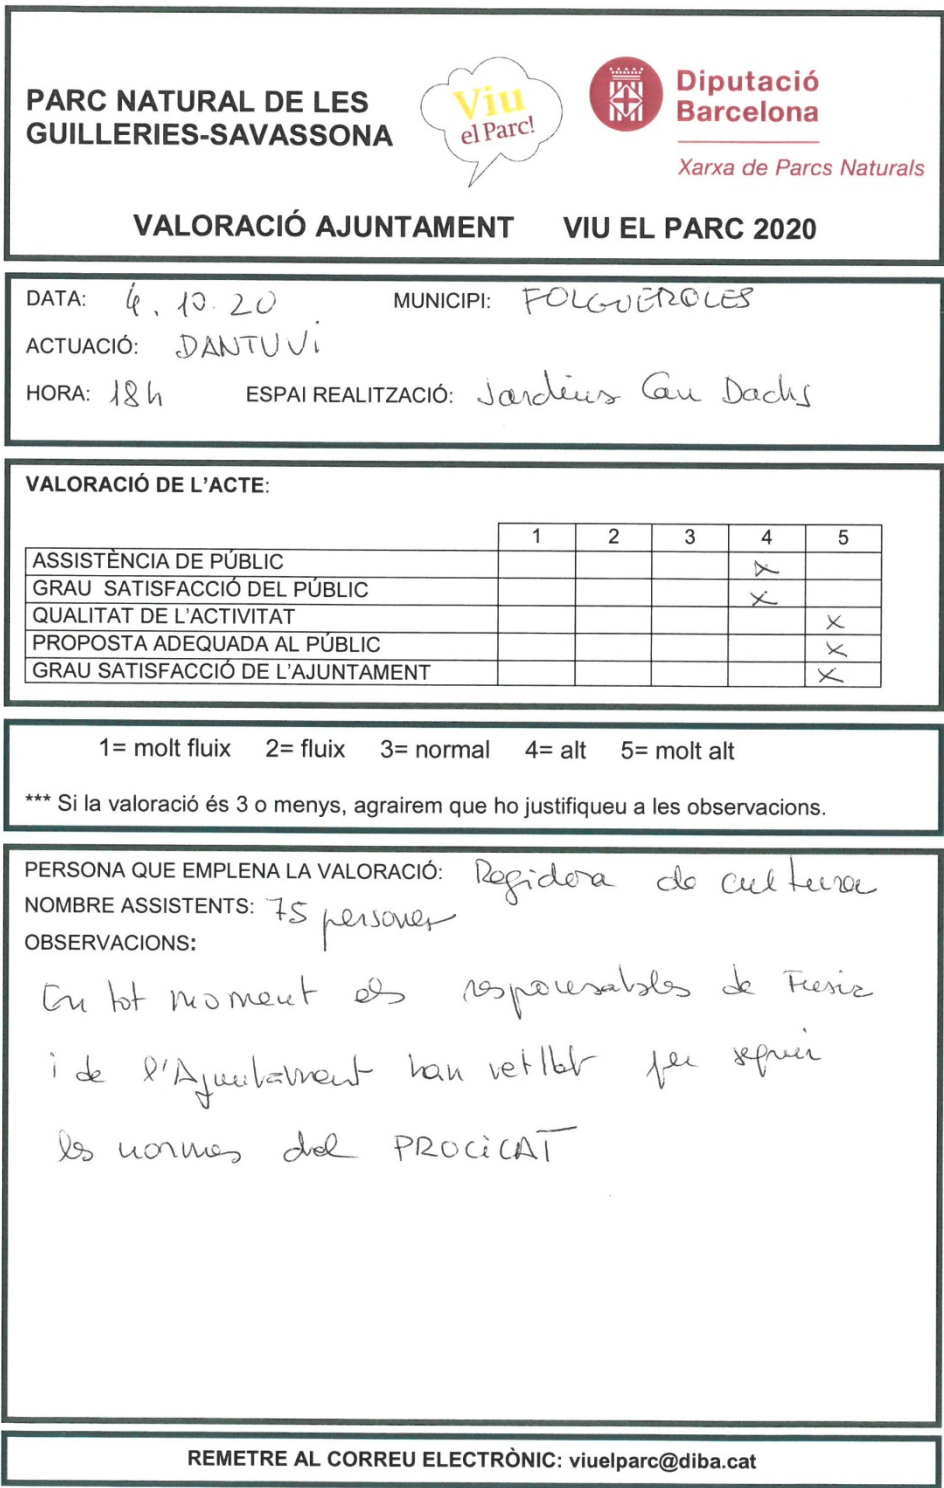 PARC NATURAL DE LES
GUILLERIES-SAVASSONA
Viu
el Parc!
Diputació
Barcelona
Xarxa de Parcs Naturals
VALORACIÓ AJUNTAMENT VIU EL PARC 2020
DATA: 4.10.20 MUNICIPI: FOLGUEROLES
ACTUACIÓ: DANTUVI
HORA: 18h ESPAI REALITZACIÓ: Jardins Can Dachs
VALORACIÓ DE L'ACTE:
1 2 3 4 5
ASSISTÈNCIA DE PÚBLIC x
GRAU SATISFACCIÓ DEL PÚBLIC x
QUALITAT DE L'ACTIVITAT x
PROPOSTA ADEQUADA AL PÚBLIC x
GRAU SATISFACCIÓ DE L'AJUNTAMENT x
1= molt fluix 2= fluix 3= normal 4= alt 5= molt alt
*** Si la valoració és 3 o menys, agrairem que ho justifiqueu a les observacions.
PERSONA QUE EMPLENA LA VALORACIÓ: Regidora de cultura
NOMBRE ASSISTENTS: 75 persones
OBSERVACIONS:
En tot moment els responsables de
i de l'Ajuntament han vetllat per seguir
les normes del PROCiCAT
REMETRE AL CORREU ELECTRÒNIC: viuelparc@diba.cat